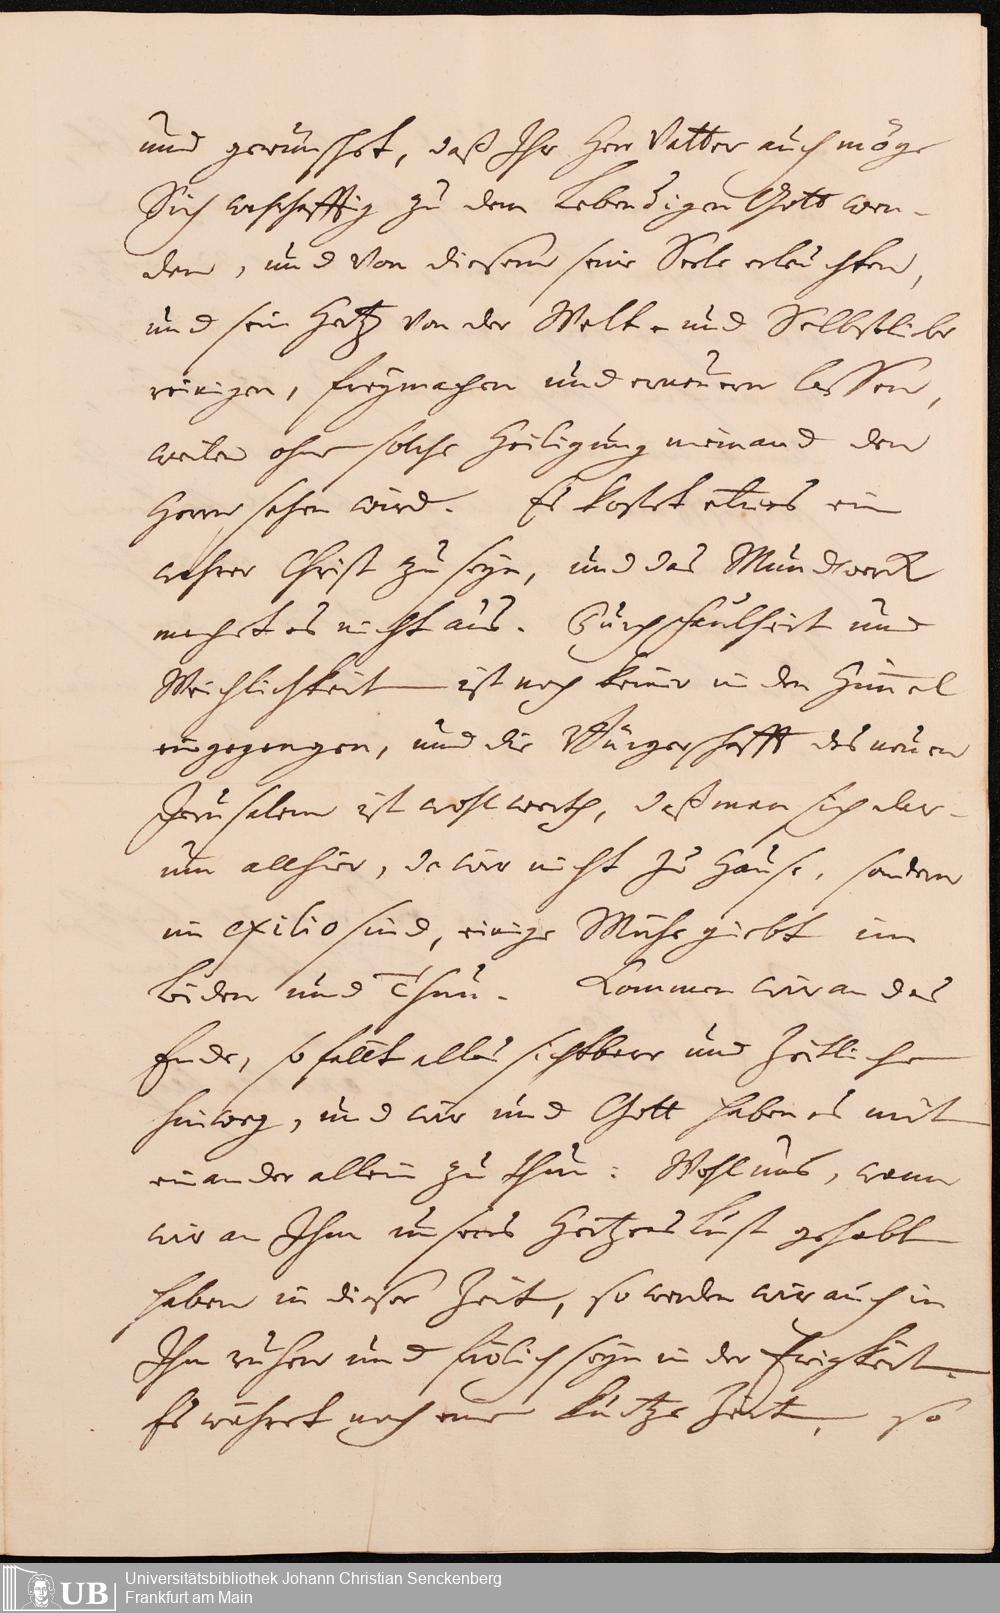 und gewünschet, daß Ihr Herr Vatter auch möge
Sich wahrhafftig zu dem Lebendigen Gott wen-
den, und von diesem seine Seele erleuchten,
und sein Hertz von der Welt- und Selbstliebe
reinigen, freymachen und erneuern lassen,
weilen ohne solche Heiligung niemand den
Herrn sehen wird. Es kostet etwas ein
wahrer Christ zu seyn, und das Mundwerck
machet es nicht aus. Durch faulheit und
Weichlichkeit ist noch keiner in den Him̅el
eingegangen, und die Bürgerschafft des neuen
Jerusalem ist wohl werth, daß man sich dar-
um allhier, da wir nicht zu Hause, sondern
in exilio sind, einige Mühe giebt im
Leiden und Thun. Kommen wir an das
Ende, so fällt alles sichtbare und Zeitliche
hinweg, und wir und Gott haben es mit
einander allein zu thun: Wohl uns, wenn
wir an Ihm unsers Hertzens Lust gehabt
haben in dieser Zeit, so werden wir auch in
Ihm ruhen und frölich seyn in der Ewigkeit.
Es währet noch eine kurtze Zeit, so
Universitätsbibliothek Johann Christian Senckenberg
Frankfurt am Main
UB